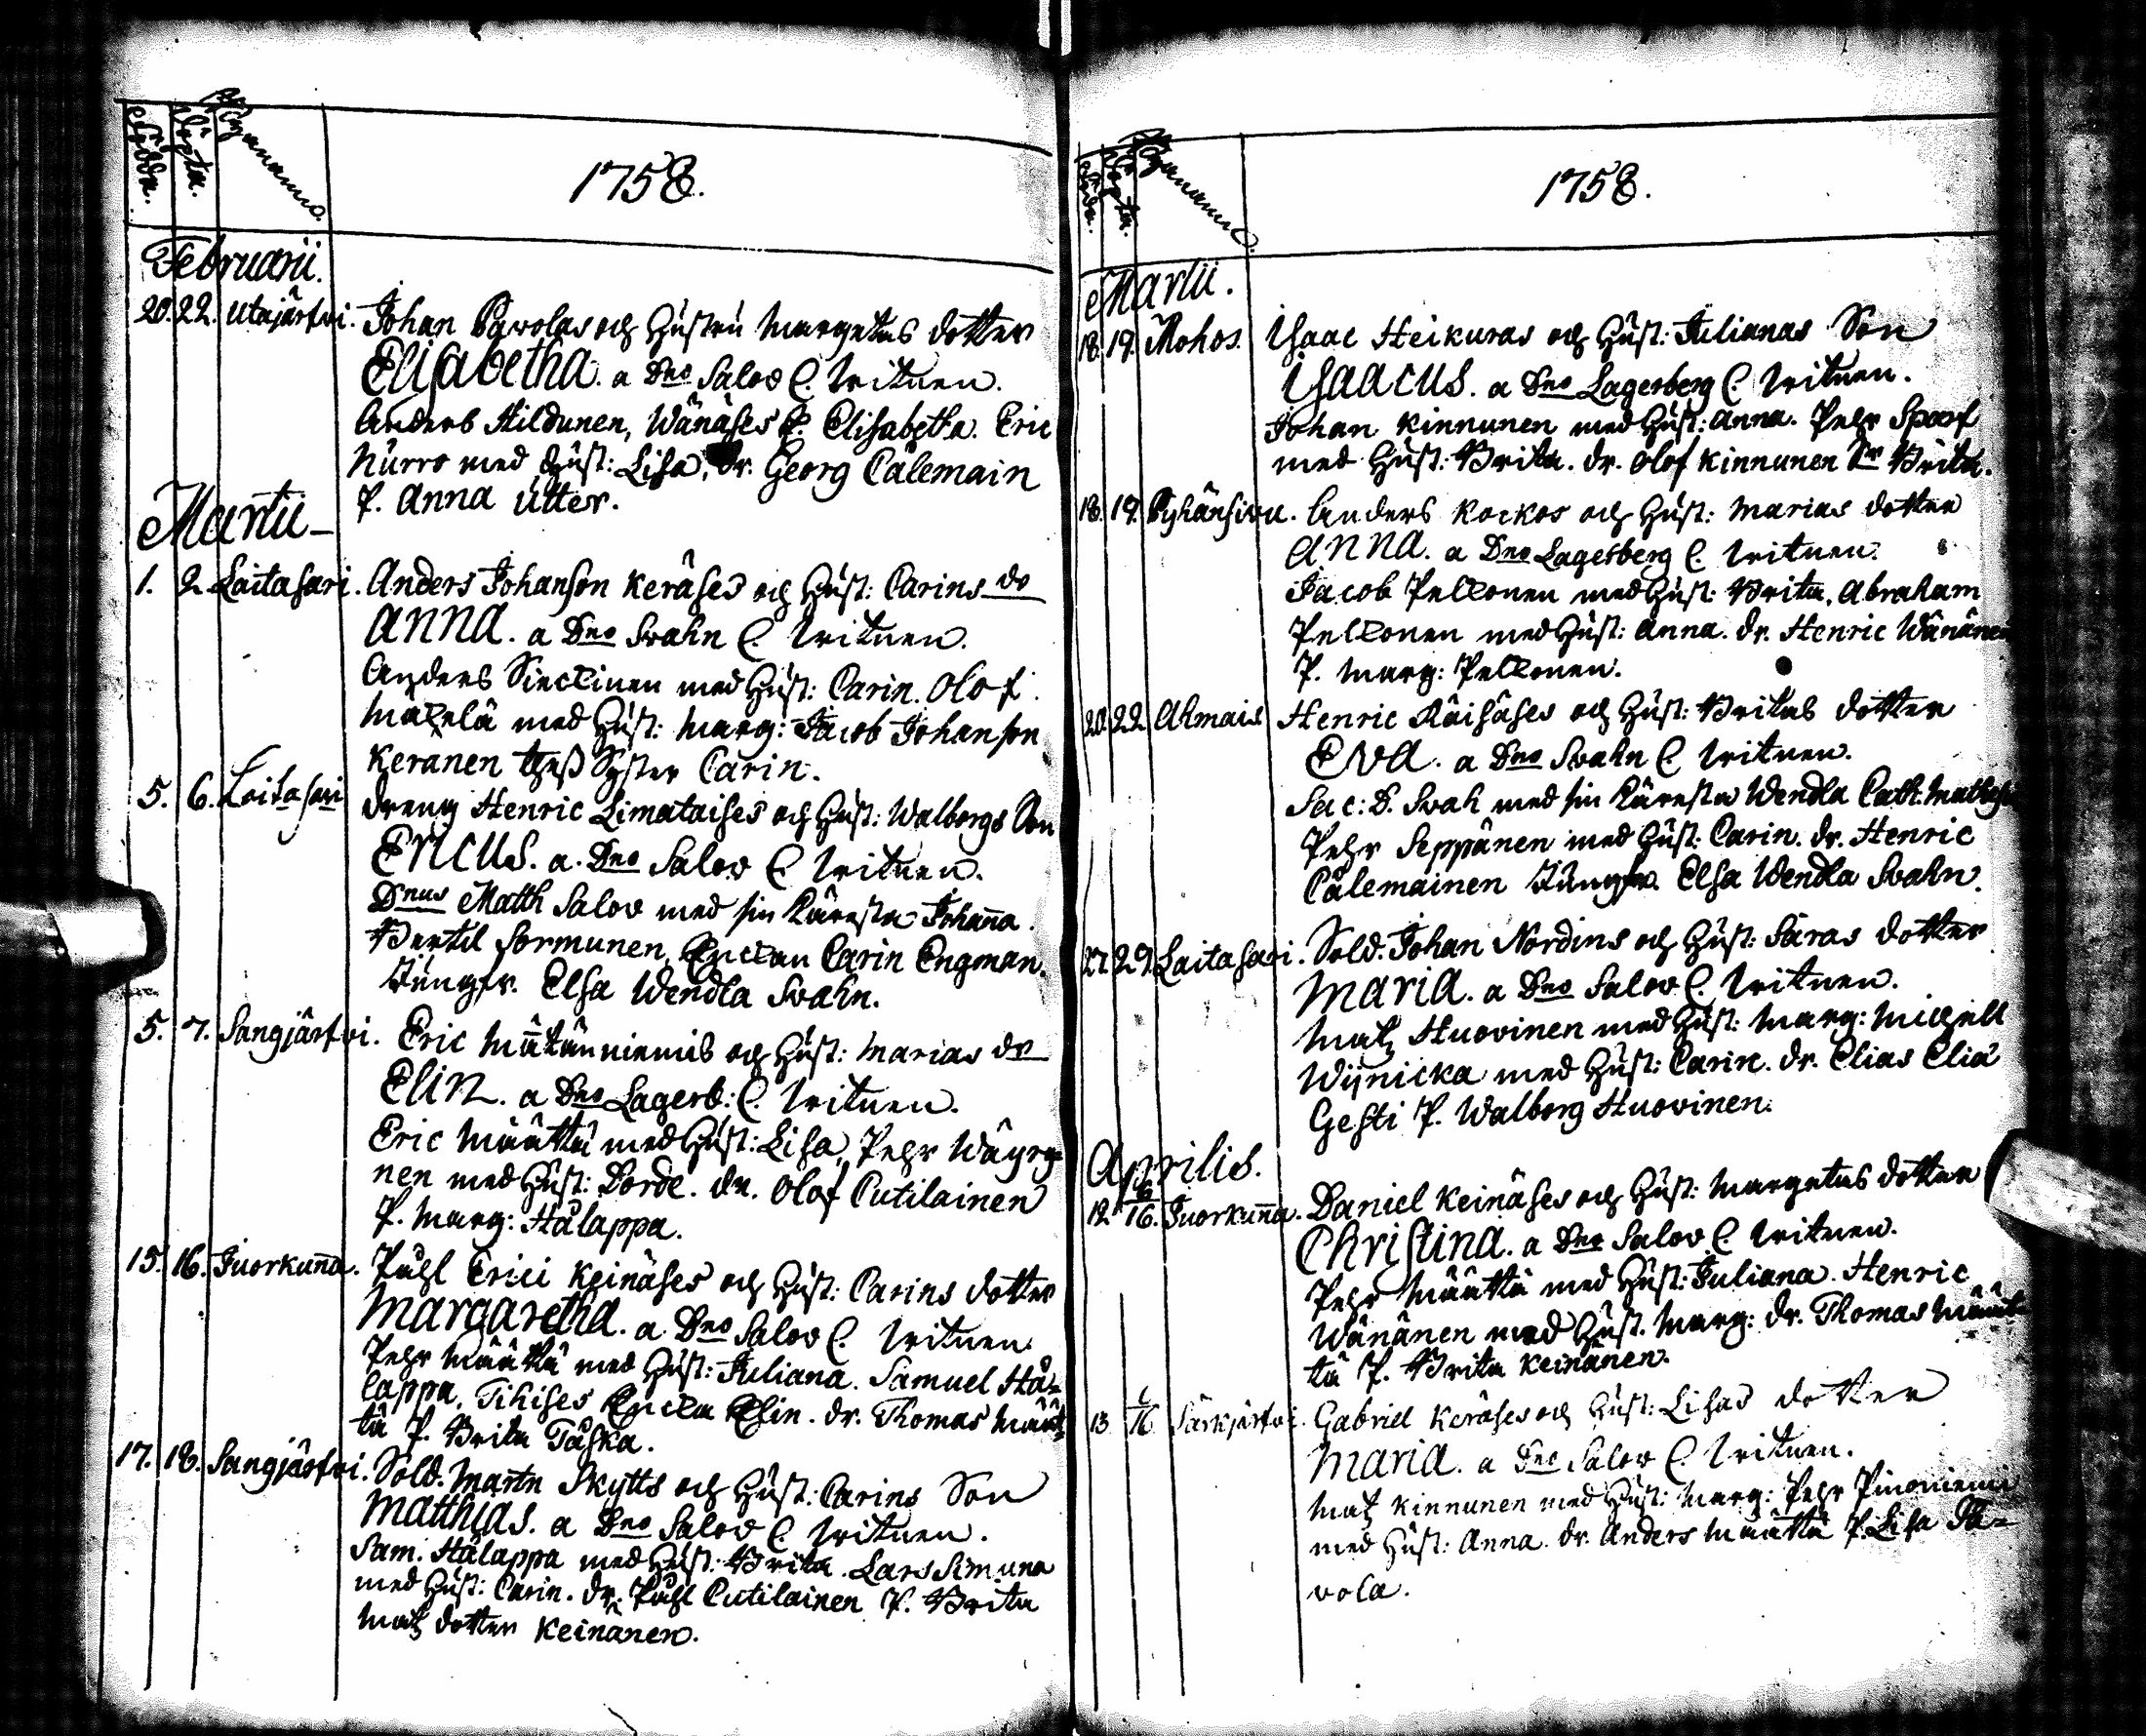 Födda. Döpta. Bÿanamns.
1758.
Februarii.
20. 22. Utajärfwi. Johan Pavolas och Hústrú Margetas dotter
Elisabetha. a Dno Salov C. Vitnen.
Anders Hildunen, Wänäses E. Elisabetha. Eric
Nurro med Húst: Lisa, dr. Georg Cálemain
P. Anna Utter.
Martii
1. 2. Laitasari. Anders Johanson Keräses och Húst: Carins dr
Anna. a Dno Svahn C. Vitnen.
Anders Sirckinen med Húst: Carin. Olof
Matelä med Húst: Marg: Jacob Johanson
Keranen thess Syster Carin.
5. 6. Laitasari dreng Henric Limataises och Húst: Walborgs Son
Ericus. a. Dno Salov C. Vitnen.
Dnus Matth Salov med sin Käresta Johanna.
Bertil Sormunen, Enckan Carin Engman.
Júngfr. Elsa Wendla Svahn.
5. 7. Sangjärfvi. Eric Mätänniemis och Húst: Marias dr
Elin. a Dno Lagerb: C. Vitnen.
Eric Määttä med Húst: Lisa, Pehr Wäyry-
nen med Húst: Dorde. dr. Olof Cutilainen
P. Marg: Hálappa.
15. 16. Juorkunna. Påhl Erici Keinäses och Húst: Carins dotter
Margaretha. a Dno Salov C. Vitnen
Pehr Määttä med Húst: Juliana. Samuel Hå-
lappa, Tihises Encka Elin. dr. Thomas Määt-
tä P. Brita Taska.
17. 18. Sangjärfvi. Sold. Martn Skytts och Húst: Carins Son
Matthias. a Dno Salov C. Vitnen.
Sam. Hálappa med Húst: Brita. Lars Simuna
med Húst: Carin. dr. Påhl Cutilainen P. Brita
Matz dotter Keinänen.
Födda. Döpta. Bÿanamns.
1758.
Martii.
18. 19. Mohos. Isaac Heikuras och Húst: Julianas Son
Isaacus. a Dno Lagerberg C. Vitnen.
Johan Kinnunen med Húst: Anna. Pehr Spoof
med Húst: Brita. dr. Olof Kinnunen Sr Brita.
18. 19. Pyhänsivu. Anders Kockos och Húst: Marias dotter
Anna. a Dno Lagerberg C. Vitnen.
Jacob Pellonen med Húst: Brita, Abraham
Pellonen med Húst: Anna. dr. Henric Wänänen
P. Marg: Pellonen.
20. 22. Ahmais Henric Räisäses och Húst: Britas dotter
Eva. a Dno Svahn C. Vitnen.
Sac: D. Svah med sin Käresta Wendla Cath: Mathesi
Pehr Seppänen med Húst: Carin. dr. Henric
Cålemainen Júngfr. Elsa Wendla Svahn.
27. 29. Laitasari. Sold. Johan Nordins och Húst: Saras dotter
Maria. a Dno Salov C. Vitnen.
Matz Huovinen med Húst: Marg: Michell
Wijnicka med Húst: Carin. dr. Elias Eliä
Gesti P. Walborg Huovinen.
Aprilis.
12. 16. Juorkunna. Daniel Keinäses och Húst: Margetas dotter
Christina. a Dno Salov C. Vitnen.
Pehr Määttä med Húst: Juliana. Henric
Wänänen med Húst. Marg: dr. Thomas Määt
tä P. Brita Keinänen.
13 16 Särkjärfvi. Gabriel Keräses och Húst: Lisas dotter
Maria. a Dno Salov C. Vitnen.
Matz Kinnunen med Húst: Marg: Pehr Pinoniemi
med Húst: Anna. dr. Anders Määttä P. Lisa Pa-
vola.